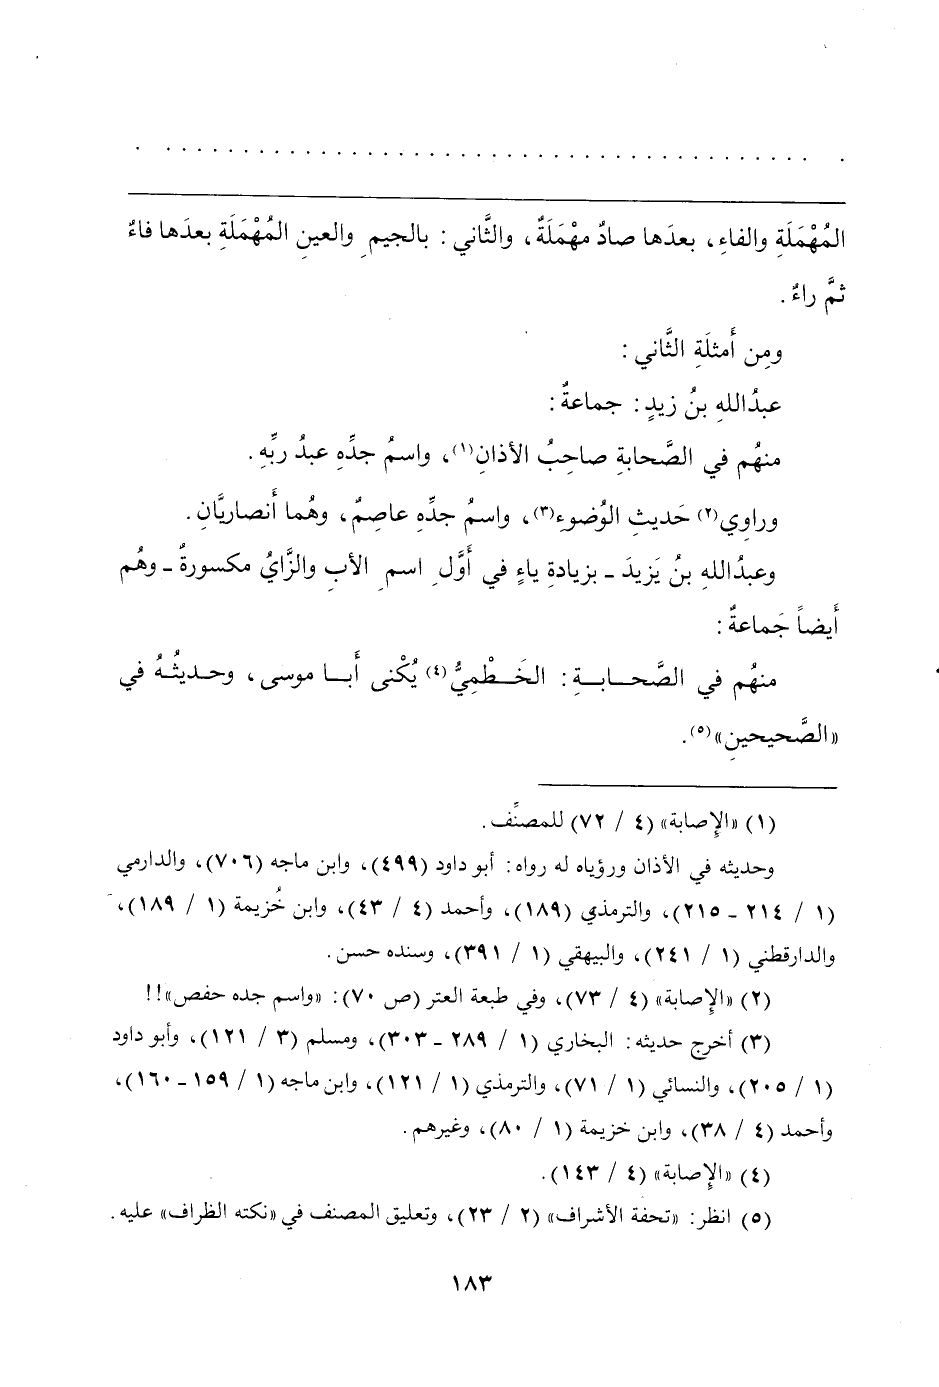 المُهْمَلَةِ والفاءِ، بعدَها صادٌ مهْمَلَةٌ، والثَّاني: بالجيمِ والعينِ المُهْمَلَةِ بعدَها فاءٌ
ثمَّ راءٌ.
ومِن أَمثلَةِ الثَّاني:
عبدُاللهِ بنُ زيدٍ: جماعةٌ:
منهُم في الصَّحابةِ صاحِبُ الأذانِ(١)، واسمُ جدِّهِ عبدُ ربِّهِ.
وراوِي(٢) حَديثِ الوُضوءِ(٣)، واسمُ جدِّه عاصِمٌ، وهُما أَنصاريَّانِ.
وعبدُاللهِ بنُ يَزيدَ ـ بزيادةِ ياءٍ في أَوَّلِ اسمِ الأبِ والزَّايُ مكسورةٌ ـ وهُم
أَيضاً جَماعةٌ:
منهُم في الصَّحابةِ: الخَطْمِيُّ(٤) يُكْنى أَبا موسى، وحديثُهُ في
«الصَّحيحينِ»(٥).
(١) «الإِصابة» (٤ / ٧٢) للمصنِّف.
وحديثه في الأذان ورؤياه له رواه: أبو داود (٤٩٩)، وابن ماجه (٧٠٦)، والدارمي
(١ / ٢١٤ ـ ٢١٥)، والترمذي (١٨٩)، وأحمد (٤ / ٤٣)، وابن خُزيمة (١ / ١٨٩)،
والدارقطني (١ / ٢٤١)، والبيهقي (١ / ٣٩١)، وسنده حسن.
(٢) «الإِصابة» (٤ / ٧٣)، وفي طبعة العتر (ص ٧٠): «واسم جده حفص»!!
(٣) أخرج حديثه: البخاري (١ / ٢٨٩ ـ ٣٠٣)، ومسلم (٣ / ١٢١)، وأبو داود
(١ / ٢٠٥)، والنسائي (١ / ٧١)، والترمذي (١ / ١٢١)، وابن ماجه (١ / ١٥٩ ـ ١٦٠)،
وأحمد (٤ / ٣٨)، وابن خزيمة (١ / ٨٠)، وغيرهم.
(٤) «الإِصابة» (٤ / ١٤٣).
(٥) انظر: «تحفة الأشراف» (٢ / ٢٣)، وتعليق المصنف في «نكته الظراف» عليه.
١٨٣